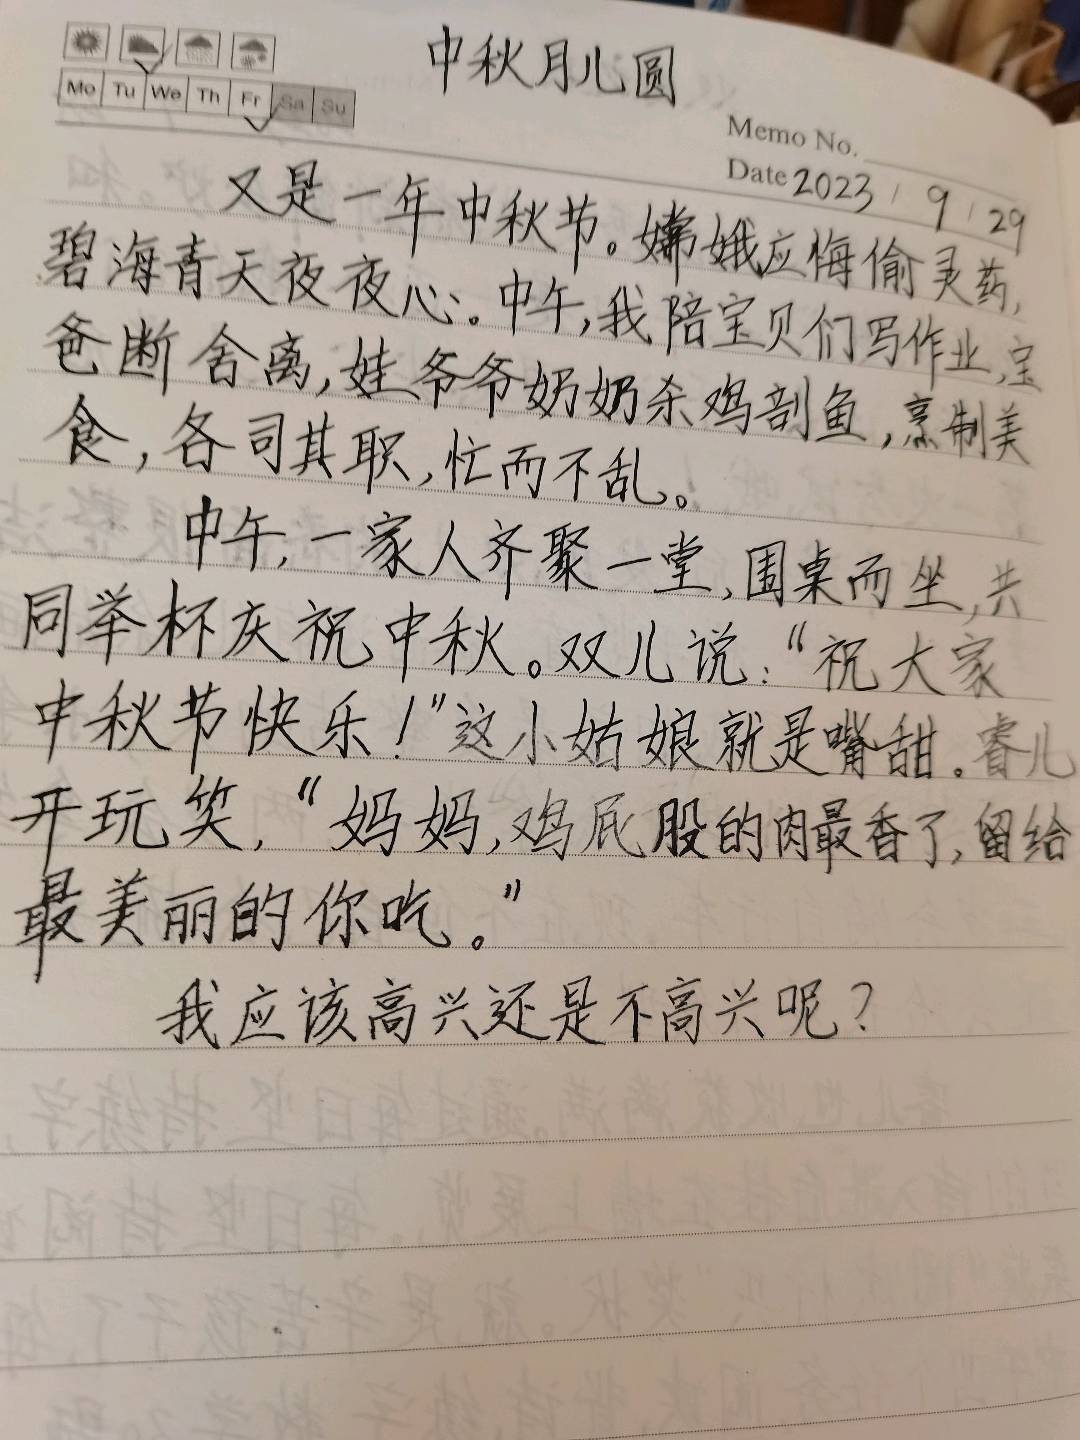 中秋月儿圆
Mo Tu We Th Fr Sa Su
Memo No.
Date 2023 / 9 / 29
又是一年中秋节。嫦娥应悔偷灵药,
碧海青天夜夜心。中午,我陪宝贝们写作业,宝
爸断舍离,娃爷爷奶奶杀鸡剖鱼,烹制美
食,各司其职,忙而不乱。
中午,一家人齐聚一堂,围桌而坐,共
同举杯庆祝中秋。双儿说:“祝大家
中秋节快乐!”这小姑娘就是嘴甜。睿儿
开玩笑,“妈妈,鸡屁股的肉最香了,留给
最美丽的你吃。”
我应该高兴还是不高兴呢?